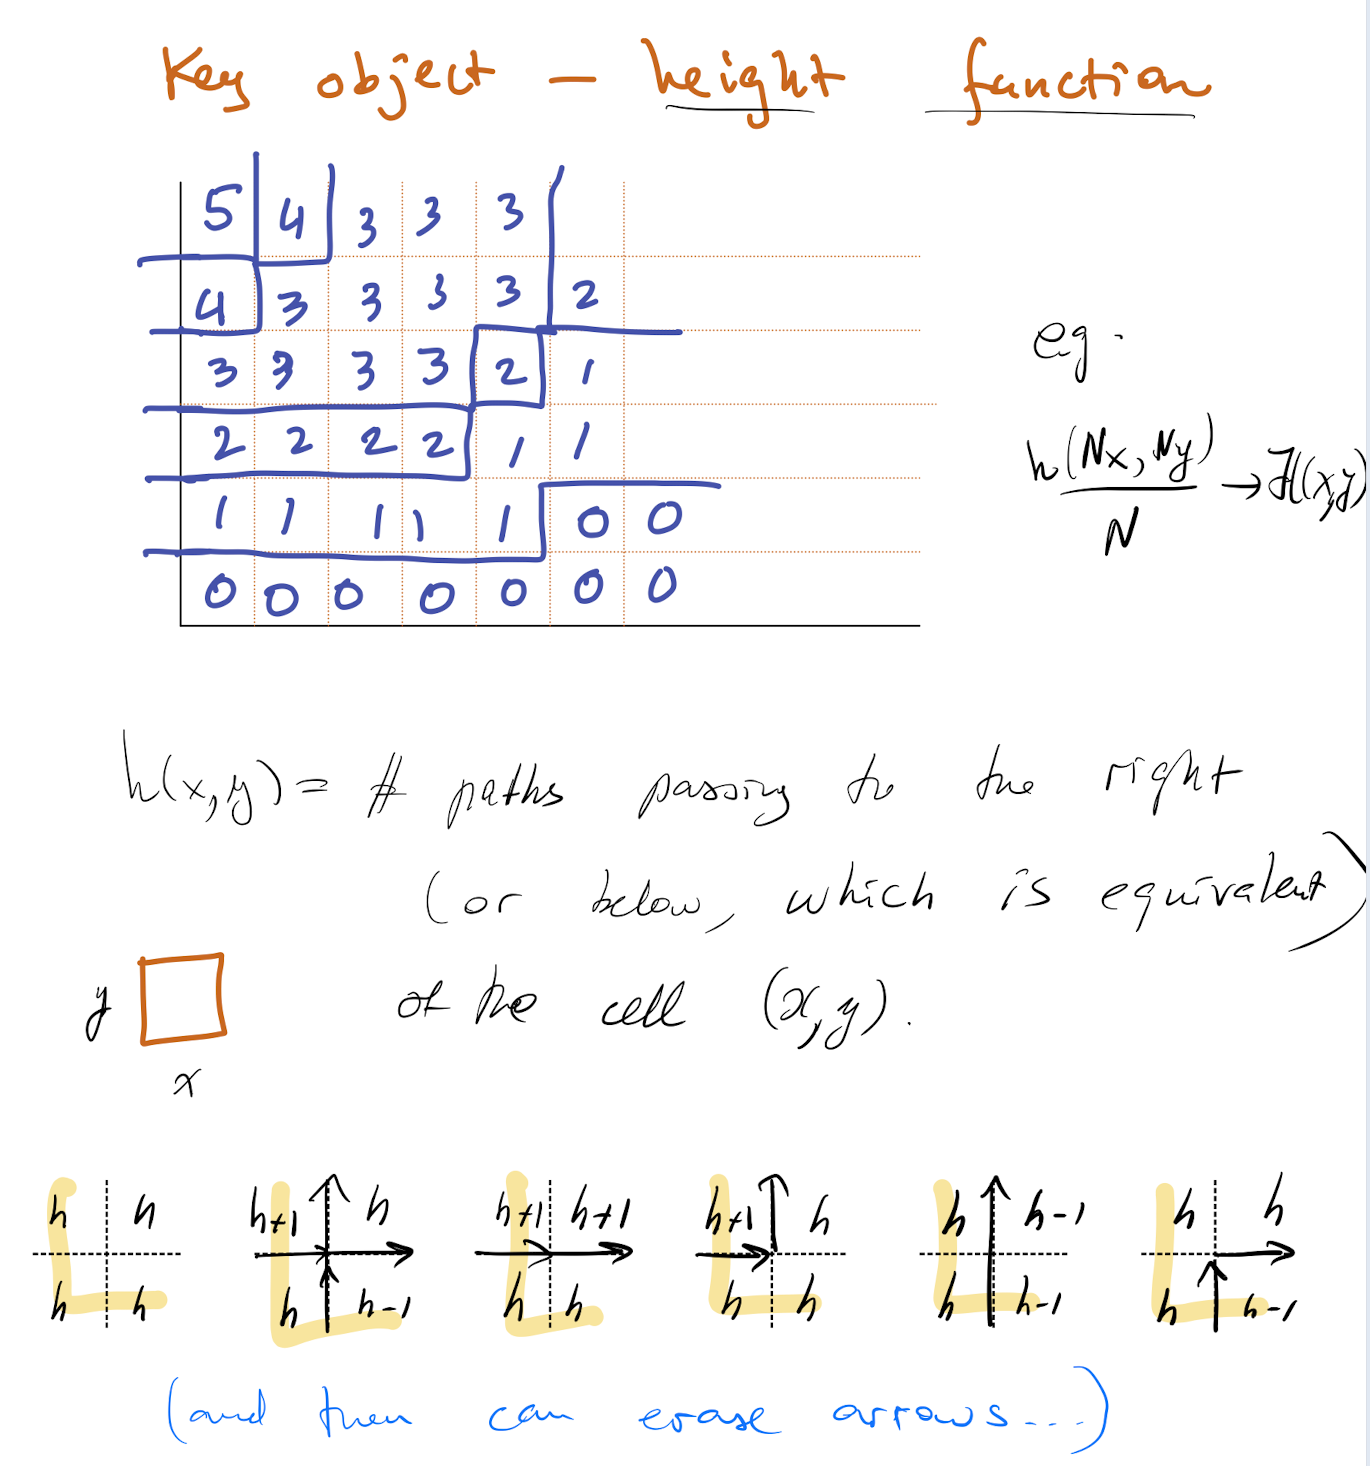 Key object – height function
5 4 3 3 3
4 3 3 3 3 2
3 3 3 3 2 1
2 2 2 2 1 1
1 1 1 1 1 0 0
0 0 0 0 0 0 0
eg.
h(Nx, Ny)
N
→ ℋ(x,y)
h(x,y) = # paths passing to the right
(or below, which is equivalent)
of the cell (x,y).
y
x
h h h+1 h h+1 h+1 h+1 h h h-1 h h
h h h h-1 h h h h h h-1 h h-1
(and then can erase arrows...)